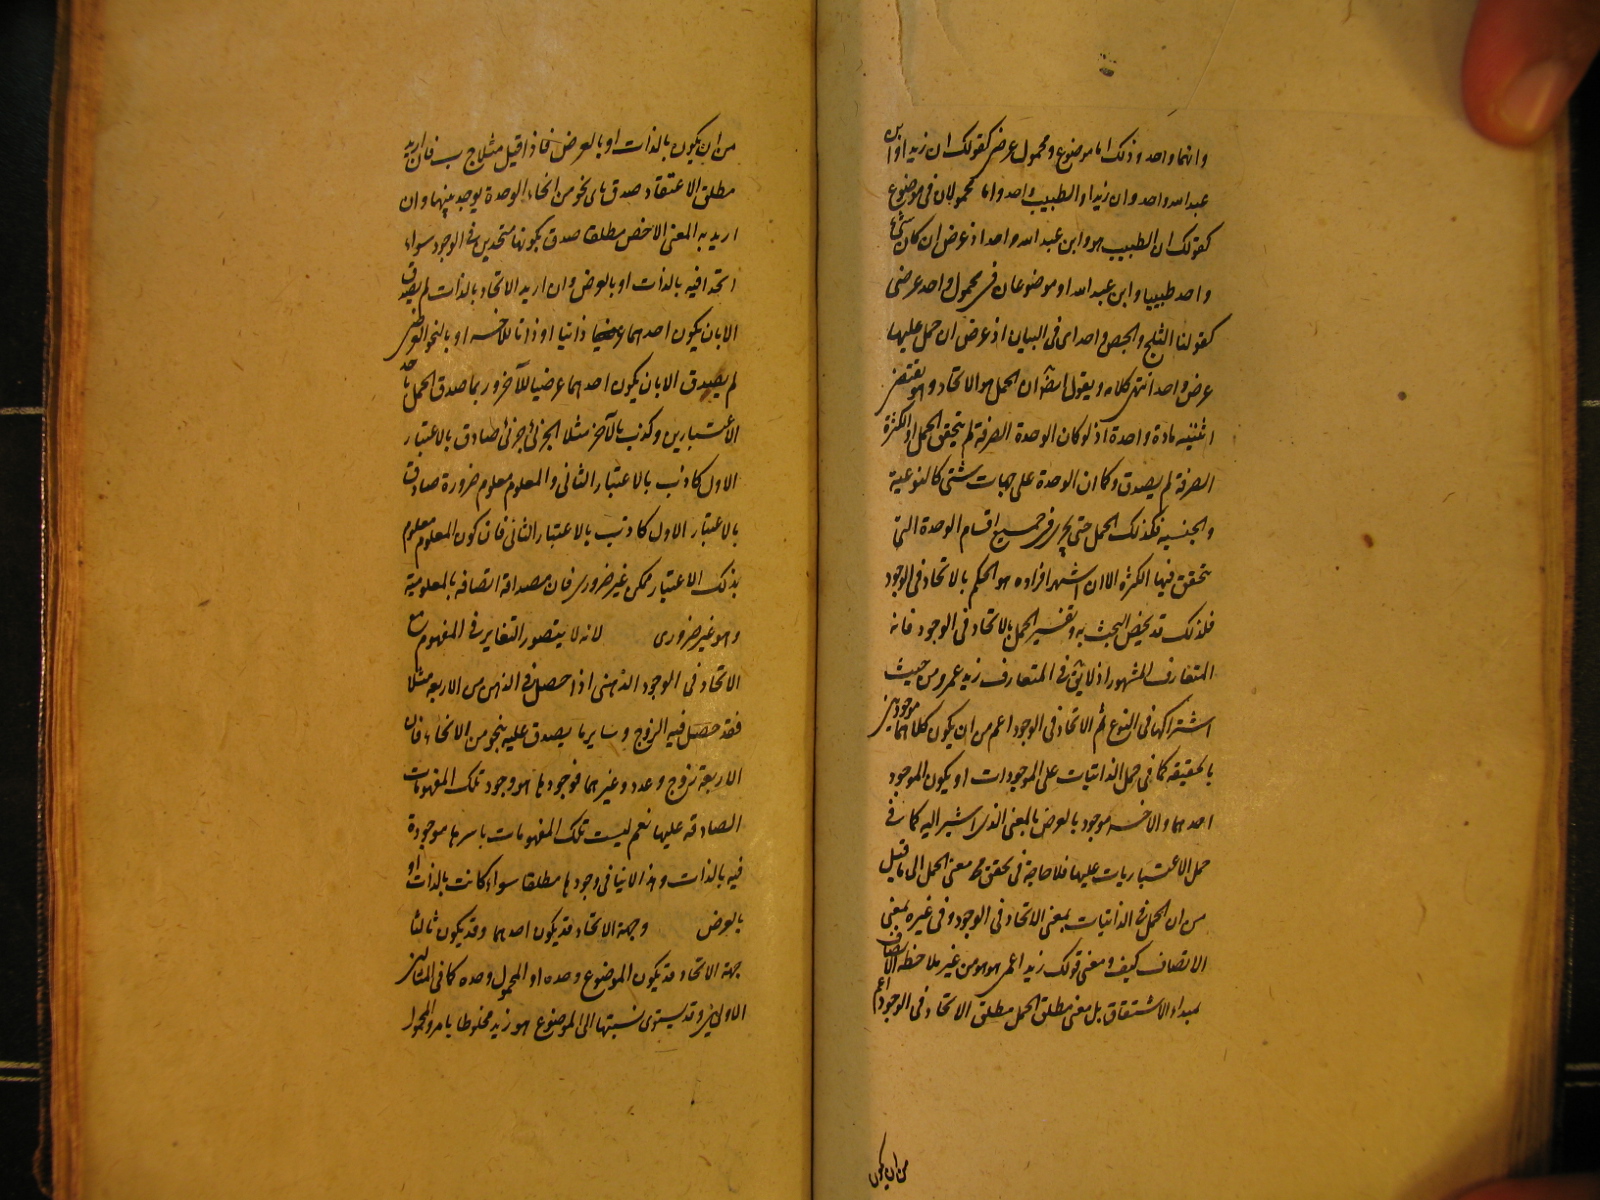 وانهما واحد وذلك اما موضوع ومحمول عرضى كقولك ان زيدا وابن
عبدالله واحد وان زيدا والطبيب واحد واما محمولان فى موضوع
كقولك ان الطبيب هو وابن عبدالله واحد اذ عرض ان كان شئ
واحد طبيبا وابن عبدالله او موضوعان فى محمول واحد عرضى
كقولنا الثلج والجص واحد اى فى البياض اذ عرض ان حمل عليهما
عرض واحد انتهى كلامه ويقول ايضا ان الحمل هو الاتحاد وهو يقتضى
اثنينية ما ووحدة ما اذ لو كان الوحدة الصرفة لم يتحقق الحمل او الكثرة
الصرفة لم يصدق وكما ان الوحدة على جهات شتى كالنوعية
والجنسية فكذلك الحمل حتى يجرى فى جميع اقسام الوحدة التى
يتحقق فيها الكثرة الا ان اشهر افراده هو الحكم بالاتحاد فى الوجود
فلذلك قد يخص البحث به وتفسير الحمل بالاتحاد فى الوجود فانه
المتعارف المشهور اذ لا يق فى المتعارف زيد عمرو من حيث
اشتراكهما فى النوع ثم الاتحاد فى الوجود اعم من ان يكون كلاهما موجودين
بالحقيقة كما فى حمل الذاتيات على الموجودات او يكون الموجود
احدهما والاخر موجود بالعرض بالمعنى الذى اشير اليه كما فى
حمل الاعتباريات عليها فلا حاجة فى تحقق معنى الحمل الى ما قيل
من ان الحمل فى الذاتيات بمعنى الاتحاد فى الوجود وفى غيره بمعنى
الاتصاف كيف ومعنى قولك زيد اعمى هو هو من غير ملاحظة الاتصاف
بمبداء الاشتقاق بل معنى مطلق الحمل مطلق الاتحاد فى الوجود اعم
من ان يكون
من ان يكون بالذات او بالعرض فاذا قيل مثلا ج ب فان اريد
مطلق الاعتقاد صدق باى نحو من انحاء الوحدة يوجد بينهما وان
اريد به المعنى الاخص مطلقا صدق بكونهما متحدين فى الوجود سواء
اتحدا فيه بالذات او بالعرض وان اريد الاتحاد بالذات لم يصدق
الا بان يكون احدهما ذاتيا او ذاتا للاخر او بالنحو العرضى
لم يصدق الا بان يكون احدهما عرضيا للآخر وربما صدق الحمل باحد
الاعتبارين وكذب بالآخر مثلا الجزئى جزئى صادق بالاعتبار
الاول كاذب بالاعتبار الثانى والمعلوم معلوم ضرورة صادق
بالاعتبار الاول كاذب بالاعتبار الثانى فان كون المعلوم معلوم
بذلك الاعتبار ممكن غير ضرورى فان مصداقه اتصافه بالمعلومية
وهو غير ضرورى لانه لا يتصور التغاير فى المفهوم مع
الاتحاد فى الوجود الذهنى اذا حصل فى الذهن من الاربعة مثلا
فقد حصل فيه الزوج وسايرما يصدق عليه بنحو من الانحاء فان
الاربعة زوج وعدد وغيرهما فوجودها هو وجود تلك المفهومات
الصادقة عليها نعم ليست تلك المفهومات باسرها موجودة
فيه بالذات وهذا لا ينافى وجودها مطلقا سواء كانت بالذات او
بالعرض وجهة الاتحاد قد يكون احدهما وقد يكون ثالثا
جهة الاتحاد قد يكون الموضوع وحده او المحمول وحده كما فى المثالين
الاولين وقد يستوى نسبتها الى الموضوع هو زيد مخلوطا بامر والمحمول